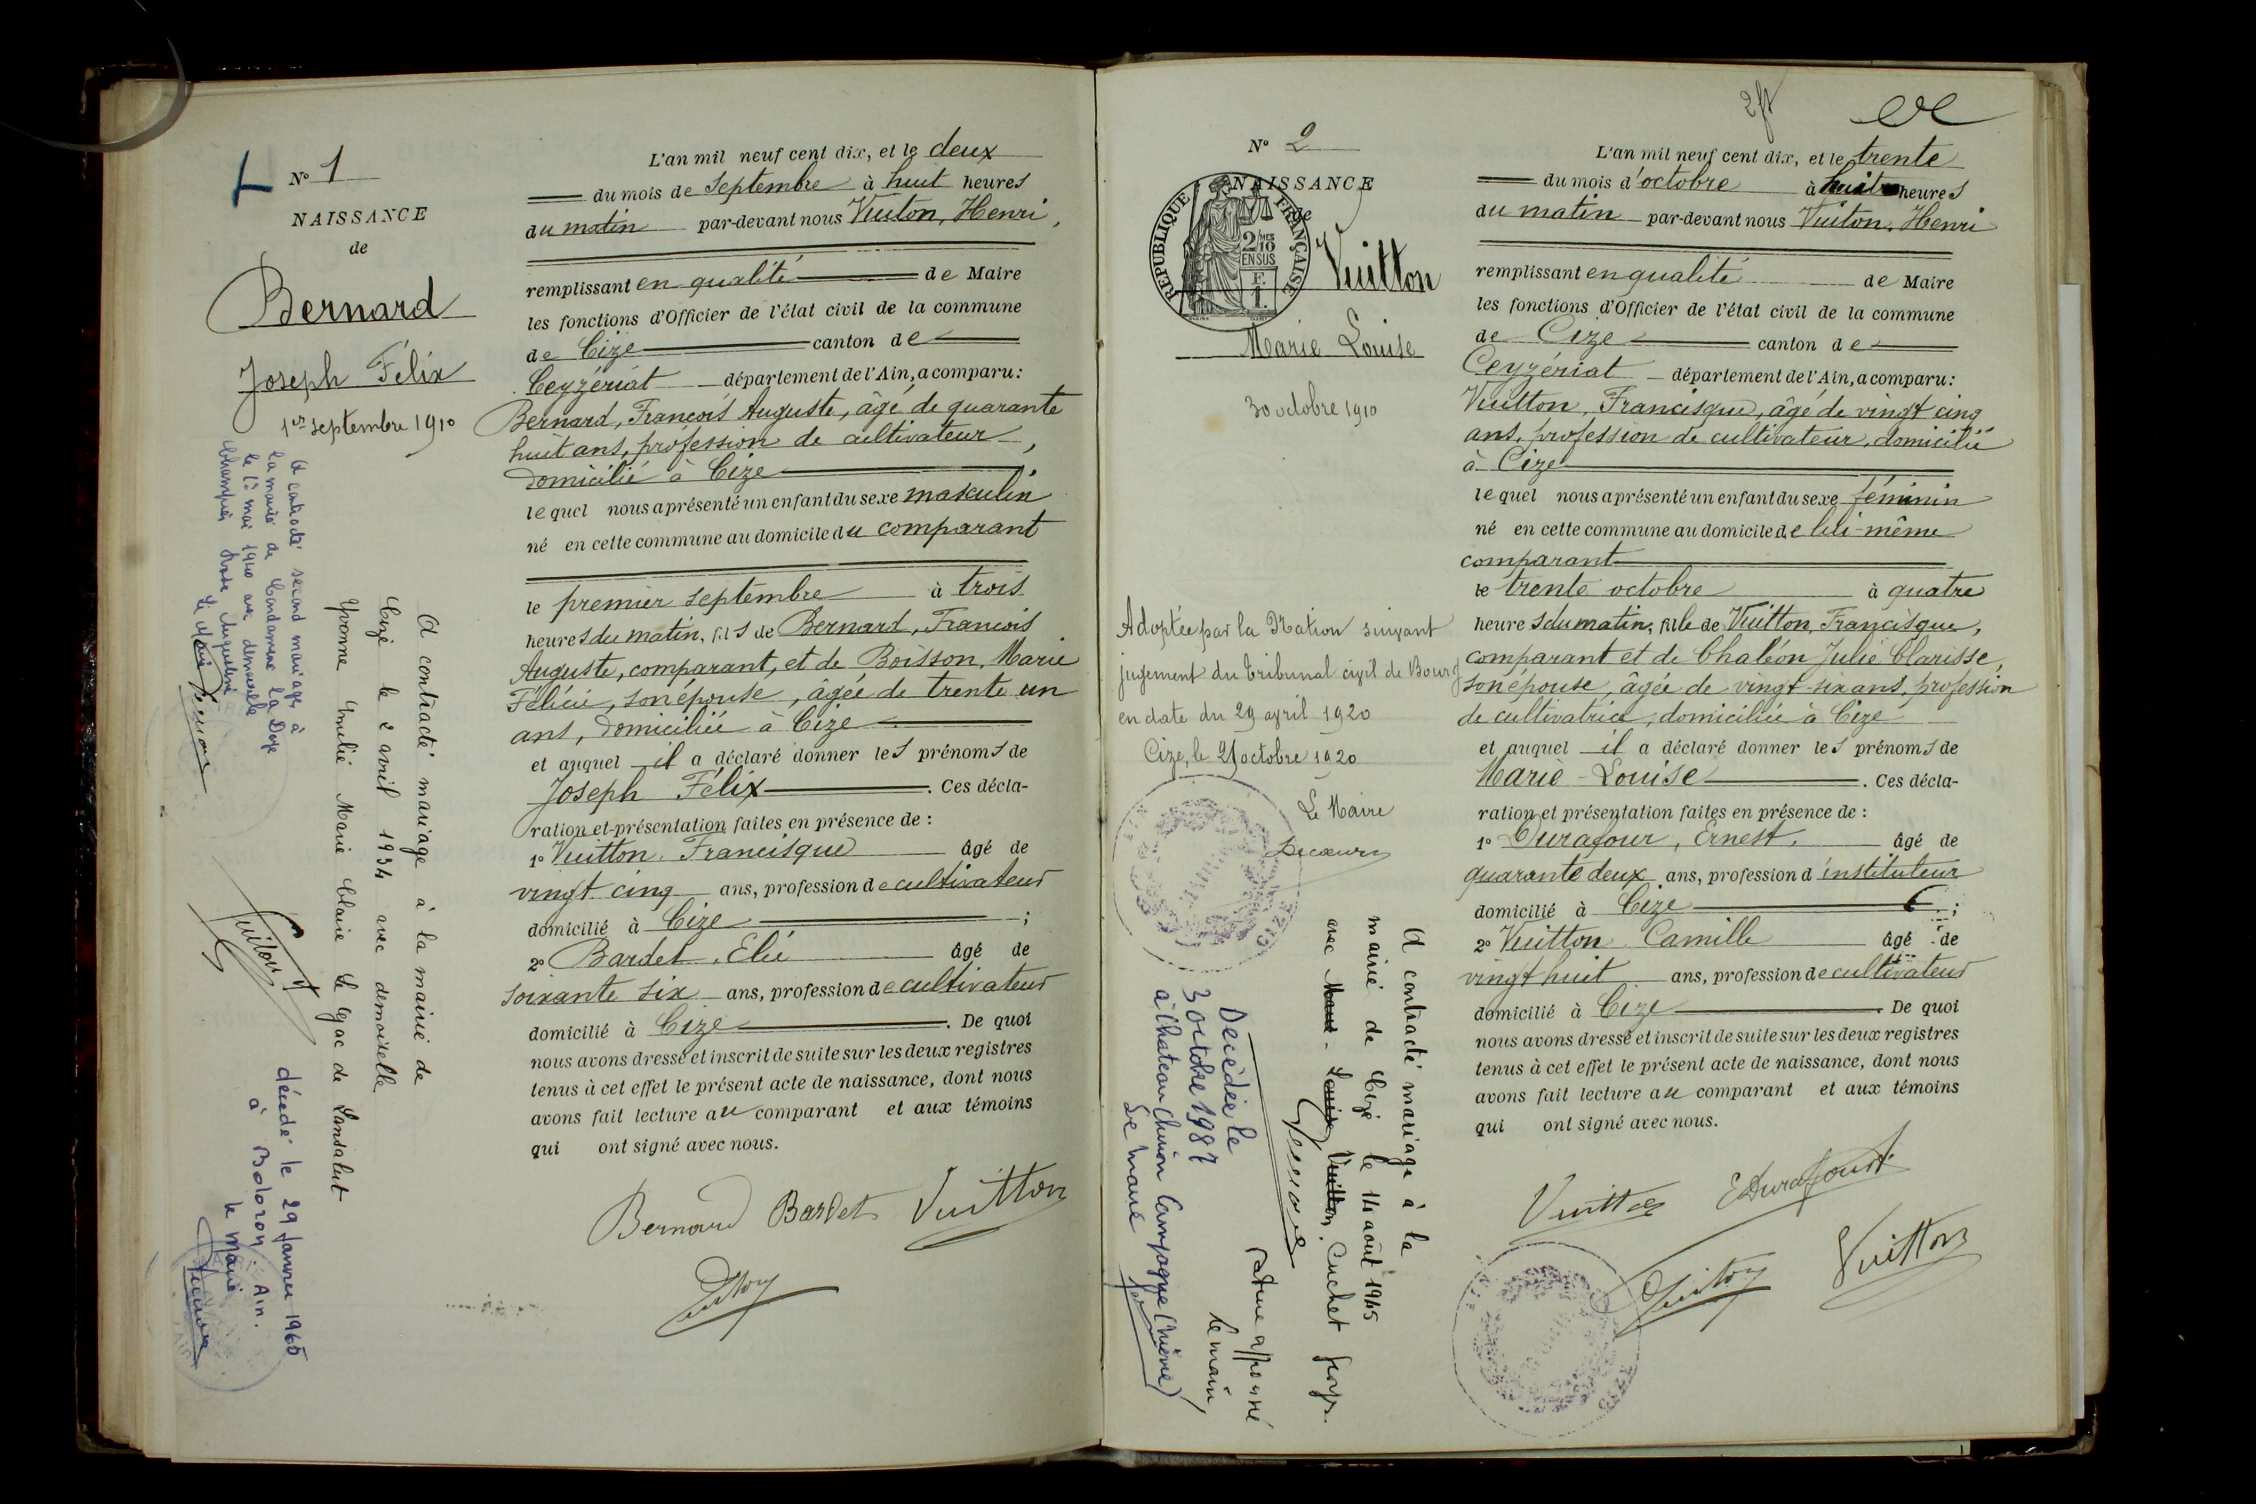 N° 1
NAISSANCE
de
Bernard
Joseph Félix
1er septembre 1910
A contracté second mariage à
la mairie de Condamine la Doye
le 1er mai 1940 avec demoiselle
Augustine
Le Maire
A contracté mariage à la mairie de
Cize le 2 avril 1934 avec demoiselle
Yvonne Marie Claire Le Gac de Lansalut
Vuiton
décédé le 29 Janvier 1965
à Bolozon. Ain.
le Maire
L'an mil neuf cent dix, et le deux
du mois de septembre à huit heures
du matin par-devant nous Vuiton, Henri,
remplissant en qualité de Maire
les fonctions d'Officier de l'état civil de la commune
de Cize canton de
Ceyzériat département de l'Ain, a comparu:
Bernard, François Auguste, âgé de quarante
huit ans, profession de cultivateur,
domicilié à Cize
le quel nous a présenté un enfant du sexe masculin
né en cette commune au domicile du comparant
le premier septembre à trois
heures du matin, fils de Bernard, François
Auguste, comparant, et de Boisson, Marie
Félicie, son épouse, âgée de trente un
ans, domiciliée à Cize
et auquel il a déclaré donner les prénoms de
Joseph Félix. Ces décla-
ration et présentation faites en présence de :
1° Vuitton. Francisque âgé de
vingt cinq ans, profession de cultivateur
domicilié à Cize ;
2° Bardet. Elie âgé de
soixante six ans, profession de cultivateur
domicilié à Cize. De quoi
nous avons dressé et inscrit de suite sur les deux registres
tenus à cet effet le présent acte de naissance, dont nous
avons fait lecture au comparant et aux témoins
qui ont signé avec nous.
Bernard Bardet Vuitton
Vuiton
2ft
N° 2
NAISSANCE
de
REPUBLIQUE FRANÇAISE
2/10 MES
EN SUS
F.
1.
Vuitton
Marie Louise
30 octobre 1910
Adoptée par la Nation suivant
jugement du tribunal civil de Bourg
en date du 29 avril 1920
Cize, le 21 octobre 1920
Le Maire
CIZE
A contracté mariage à la
mairie de Cize le 11 août 1945
avec Marie-Louise Vuitton. Cuchet
Décédée le
3 octobre 1987
à Chateau Chinon Campagne (Nièvre)
Le maire
L'an mil neuf cent dix, et le trente
du mois d'octobre à huit heures
du matin par-devant nous Vuiton, Henri
remplissant en qualité de Maire
les fonctions d'Officier de l'état civil de la commune
de Cize canton de
Ceyzériat département de l'Ain, a comparu:
Vuitton, Francisque, âgé de vingt cinq
ans, profession de cultivateur, domicilié
à Cize
le quel nous a présenté un enfant du sexe féminin
né en cette commune au domicile de lui-même
comparant
le trente octobre à quatre
heures du matin, fille de Vuitton, Francisque,
comparant et de Chaléon Julie Clarisse,
son épouse, âgée de vingt-six ans, profession
de cultivatrice, domiciliée à Cize
et auquel il a déclaré donner les prénoms de
Marie-Louise. Ces décla-
ration et présentation faites en présence de :
1° Durafour, Ernest, âgé de
quarante deux ans, profession d'instituteur
domicilié à Cize ;
2° Vuitton Camille âgé de
vingt huit ans, profession de cultivateur
domicilié à Cize. De quoi
nous avons dressé et inscrit de suite sur les deux registres
tenus à cet effet le présent acte de naissance, dont nous
avons fait lecture au comparant et aux témoins
qui ont signé avec nous.
Vuitton EDurafour
Vuiton Vuitton
CIZE